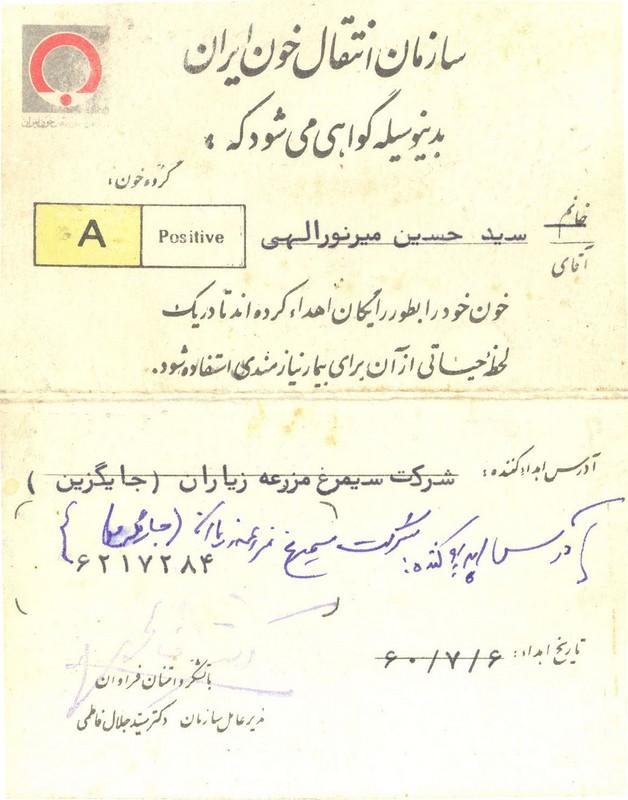 سازمان انتقال خون ایران
بدینوسیله گواهی می شود که :
گروه خون :
خانم
آقای
سید حسین میرنورالهی
Positive
A
خون خود را بطور رایگان اهداء کرده اند تا در یک
لحظه حیاتی از آن برای بیمار نیازمندی استفاده شود.
آدرس اهداء کننده : شرکت سیمرغ مزرعه زیاران (جایگزین )
آدرس کننده : شرکت سیمرغ مزرعه زیاران
۶۲۱۷۲۸۴
تاریخ اهداء : ۶۰/۷/۶
با تشکر و امتنان فراوان
مدیر عامل سازمان دکتر سید جلال فاطمی